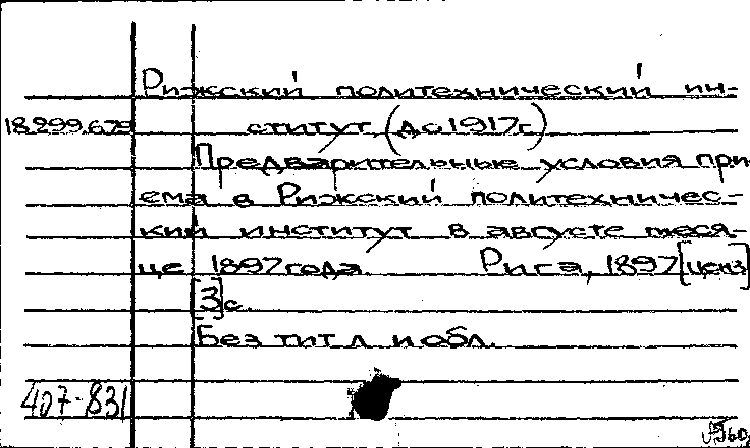 Рижский политехнический ин-
18.299.679 ститут (до 1917г.)
Предварительные условия при
ема в Рижский политехничес-
кий институт в августе меся-
це 1897 года. Рига, 1897 [ценз]
[3]с.
Без тит л. и обл.
407-831